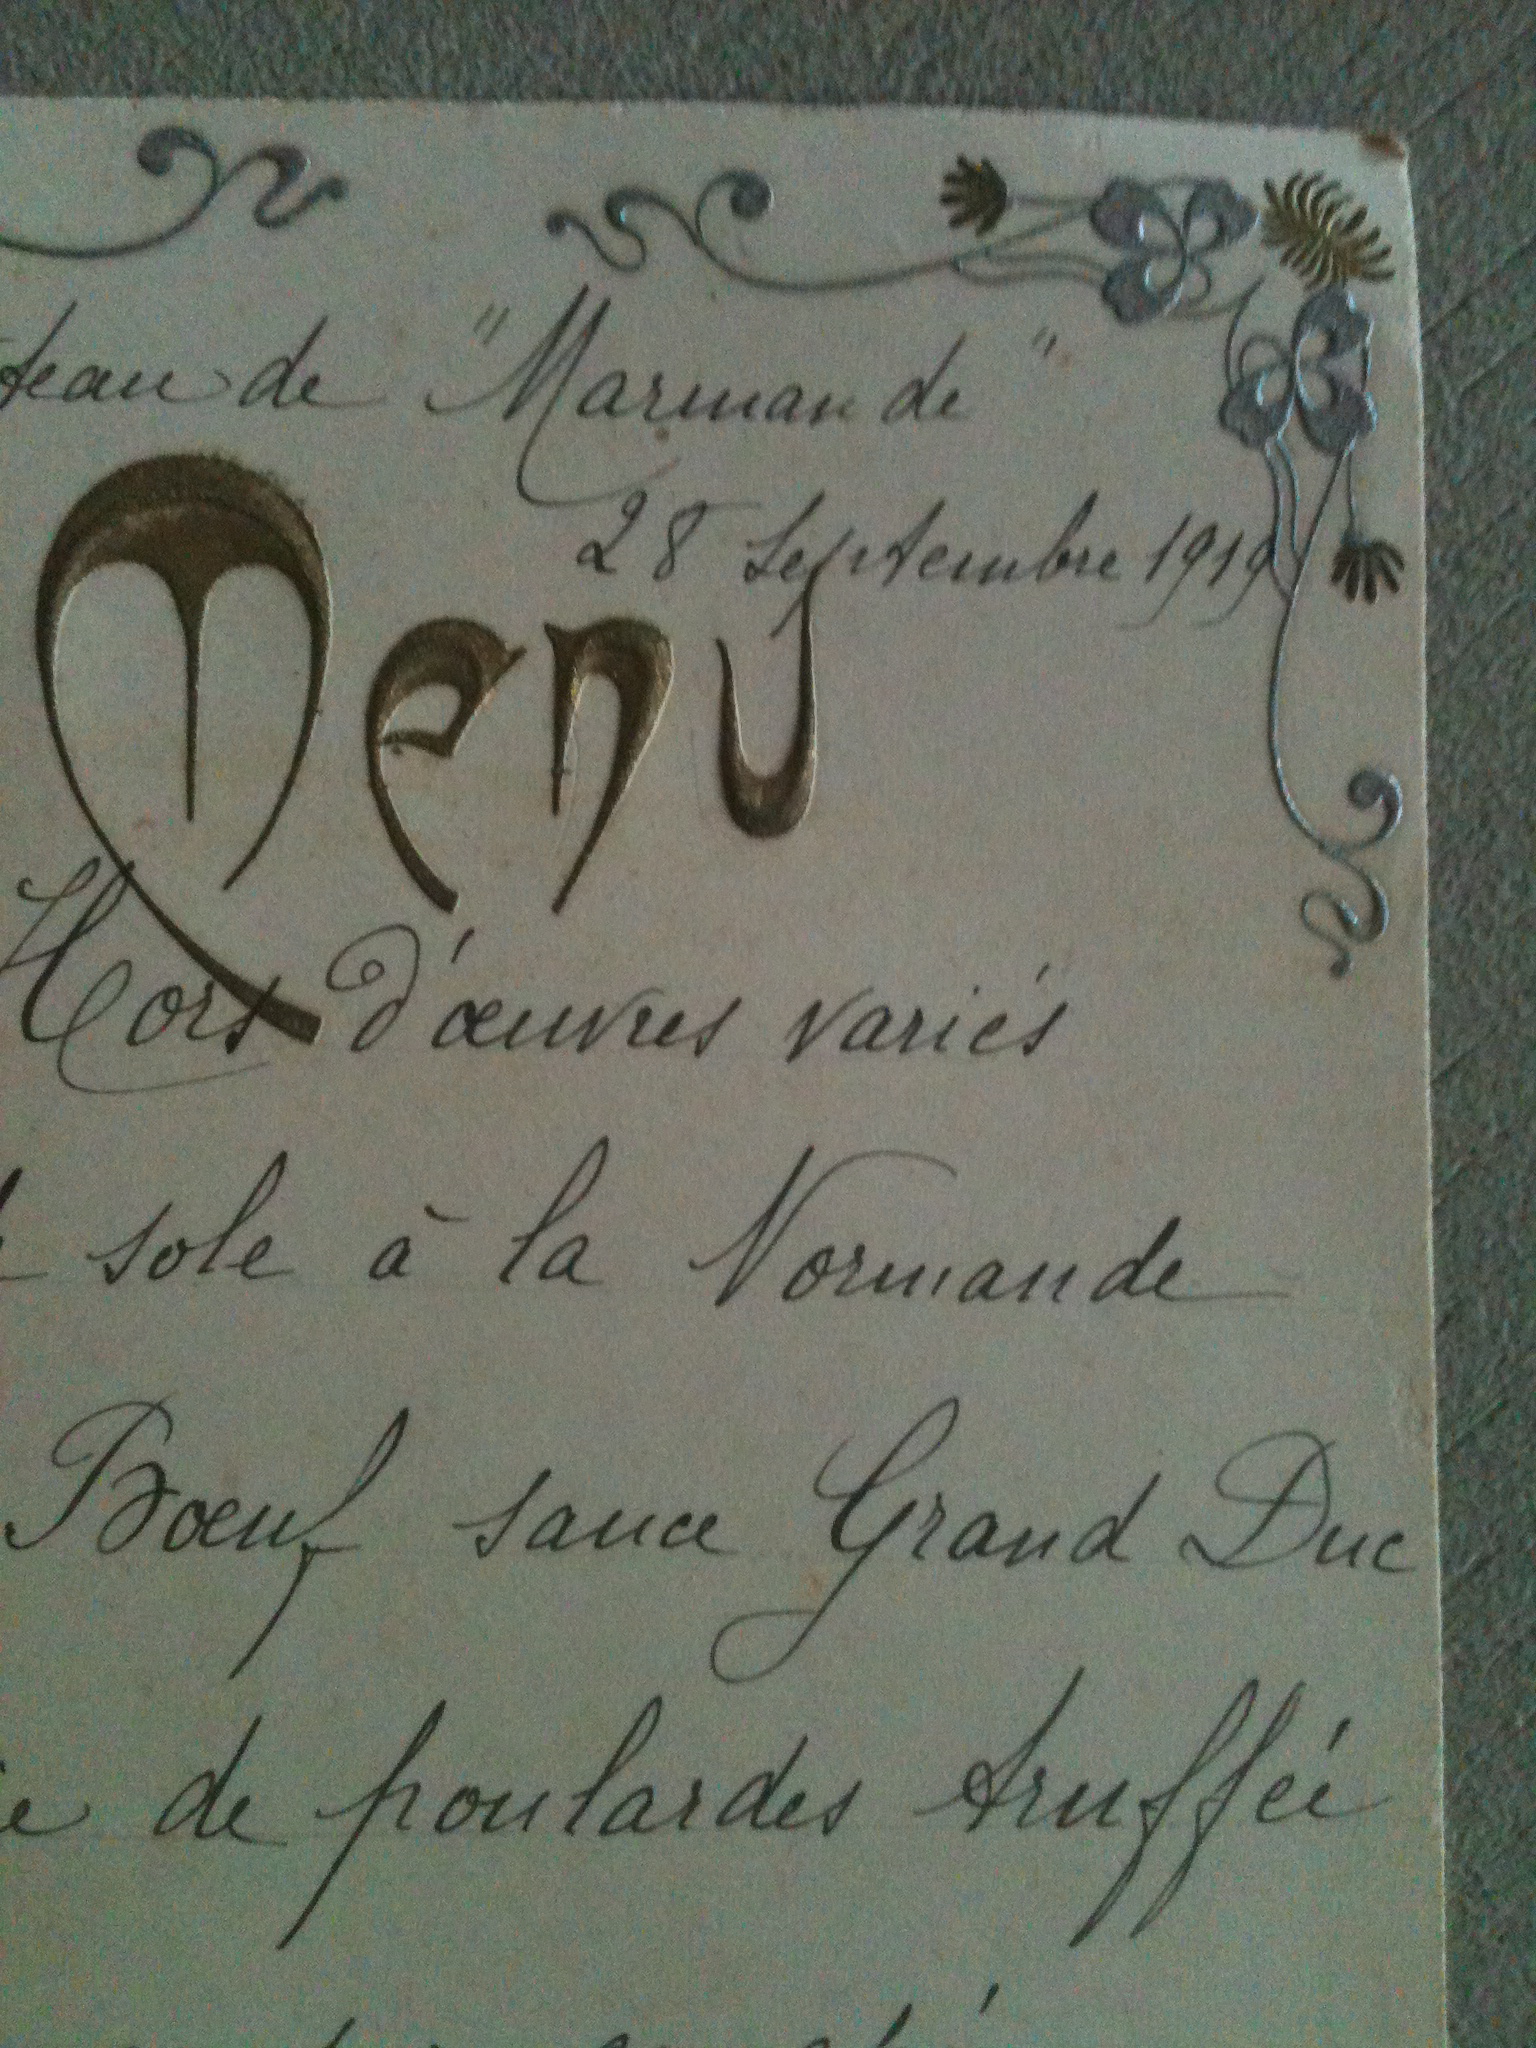 teau de "Marmande"
28 Septembre 1919
Menu
Hors d'œuvres variés
sole à la Normande
Bœuf sauce Grand Duc
de poulardes truffée